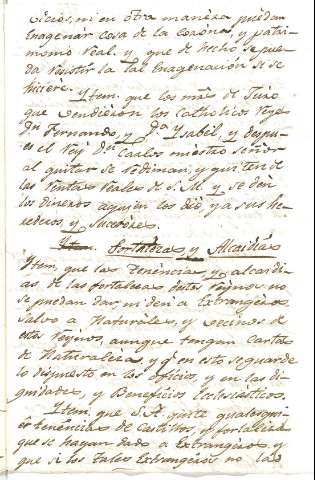 vicios, ni en otra manera puedan
Enagenar Cosa de la Corona, y patri-
monio Real. y que de hecho se pue-
da resistir la tal Enagenación si se
hiciere. Ytem. que los mrs de Juro
que Vendieron los Catholicos Reyes
Dn Fernando, y Da Ysabel, y despu-
es el Rey Dn Carlos nuestro Señor
al quitar se rediman, y quiten de
las Rentas Reales de S. M. y se den
los dineros a quien los dió, y a sus he-
rederos, y Sucesores.
Ytem. Fortalezas y Alcaidias
Ytem, que las Tenencias, y alcaidi-
as de las fortalezas destos Reynos no
se puedan dar ni den a Extrangeros
Salvo a Naturales, y Vecinos de
estos Reynos, aunque tengan Cartas
de Naturaleza, y q en esto se guarde
lo dispuesto en los oficios, y en las di-
gnidades, y Beneficios Eclesiasticos.
Ytem, que S. A. quite qualesqui-
er tenencias de Castillos, y fortalezas
que se hayan dado a Extrangeros, y
que si los tales Extrangeros no las